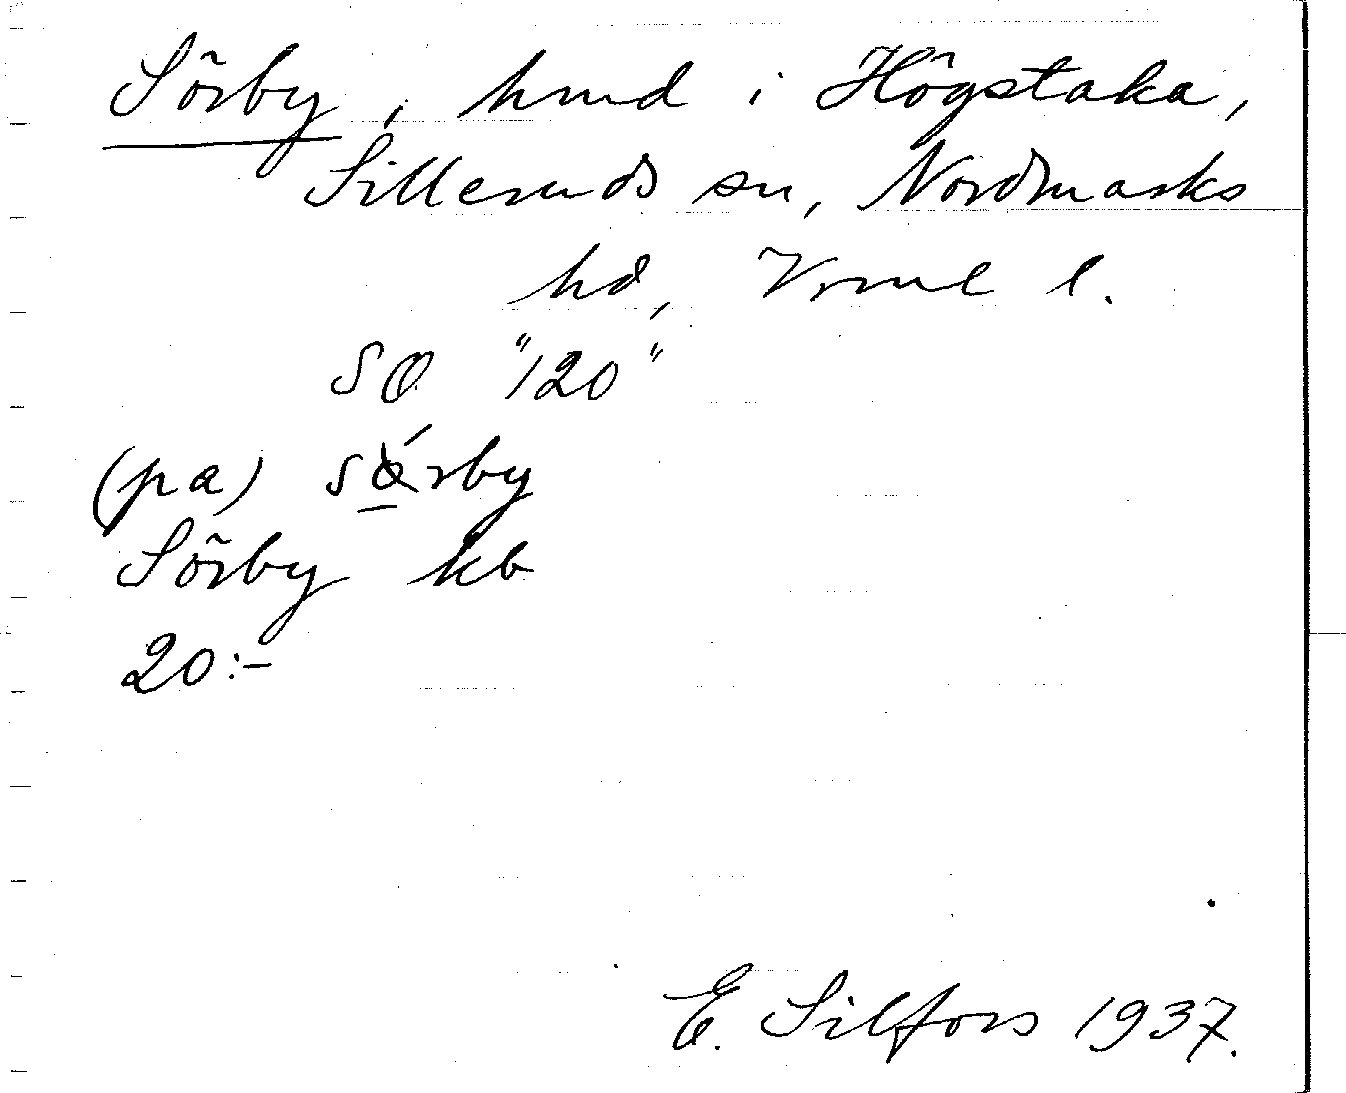 Sörby, hmd i Högstaka,
Silleruds sn, Nordmarks
hd, Vrml l.
SO "120"
(pa) sɷ́rby
Sörby kb
20:-
E. Silfors 1937.